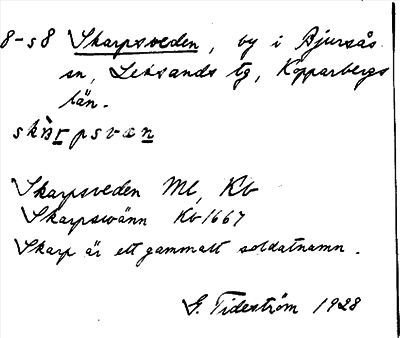 8-58 Skarpsveden, by i Bjursås
sn, Leksands tg, Kopparbergs
län.
skàrpsvæn
Skarpsveden Ml, Kb
Skarpswänn Kb 1667
Skarp är ett gammalt soldatnamn.
G. Tideström 1928